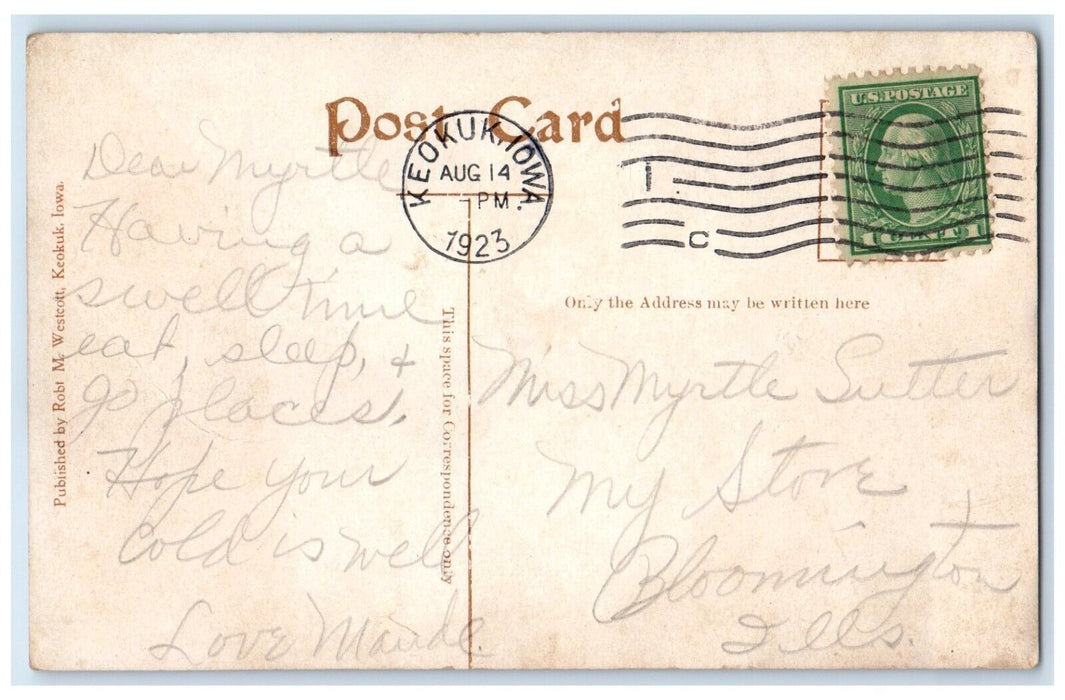 Post Card
KEOKUK, IOWA
AUG 14
- PM.
1923
1
C
U.S. POSTAGE
1 CENT 1
Only the Address may be written here
Dear Myrtle
Having a
swell time
eat, sleep, +
go places.
Hope your
cold is well
Love Maude.
This space for Correspondence only
Miss Myrtle Sutter
My Store
Bloomington
Ills.
Published by Robt M. Westcott, Keokuk, Iowa.